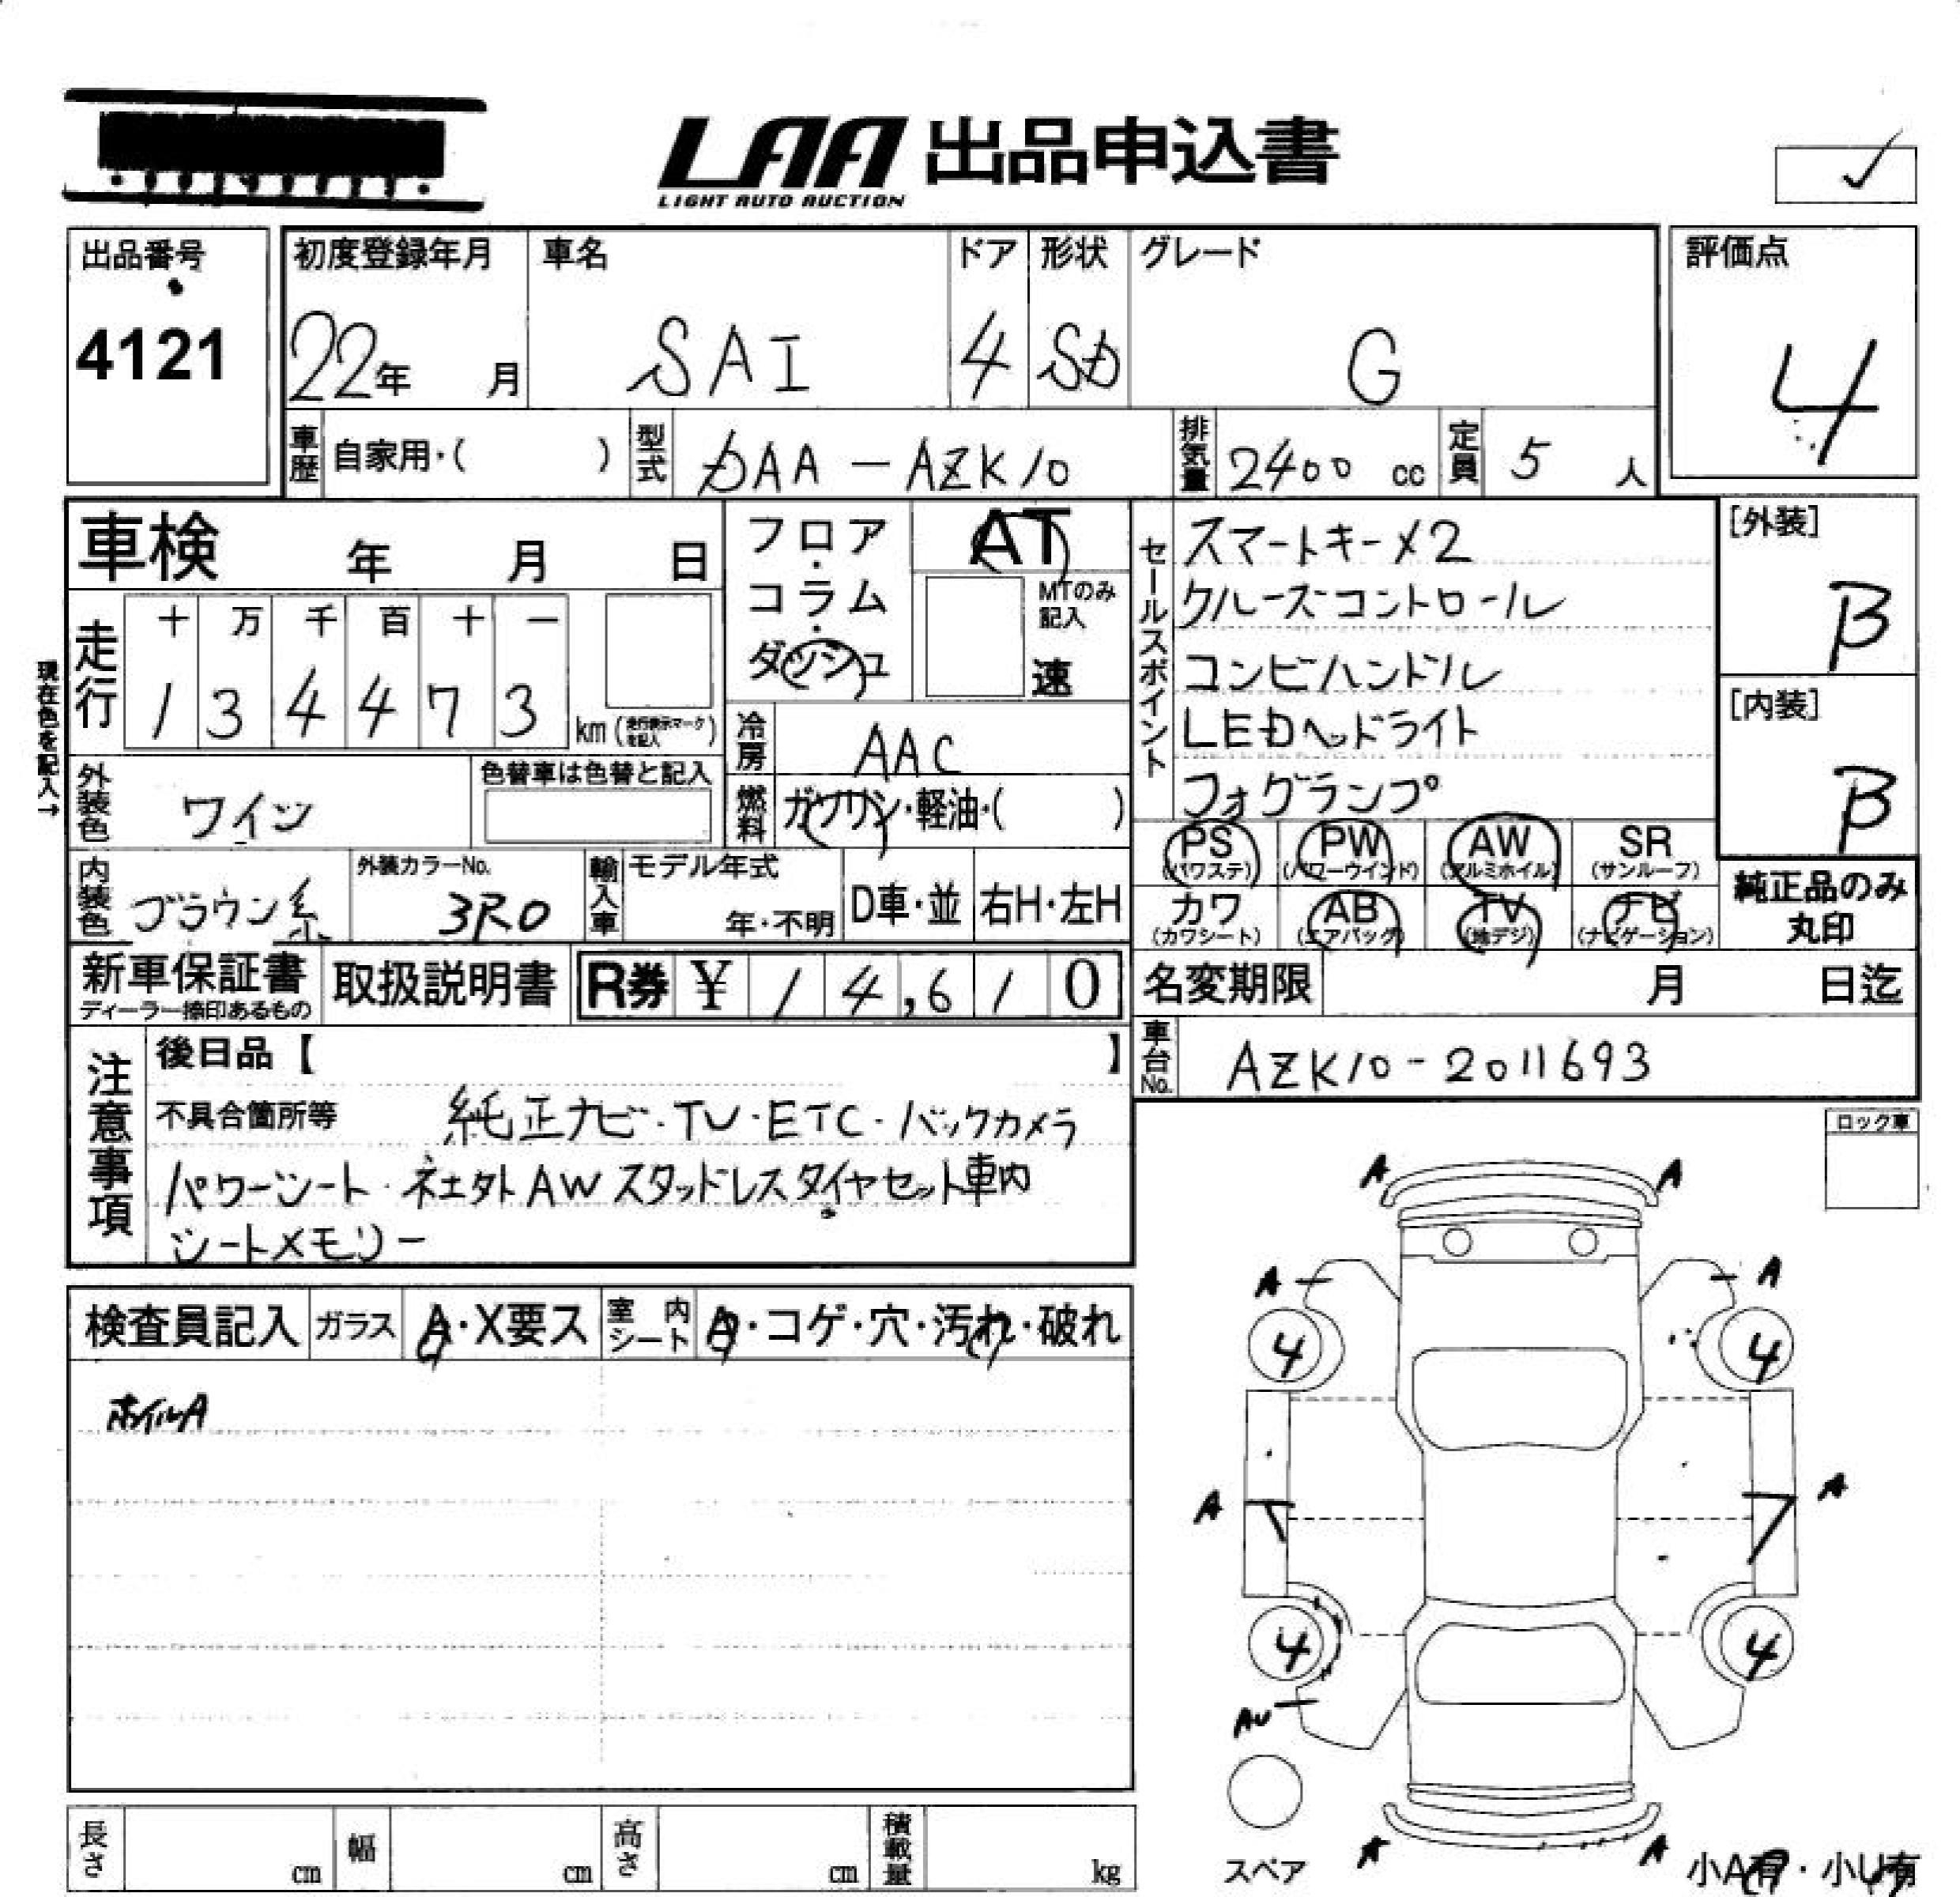 LAA 出品申込書
LIGHT AUTO AUCTION
出品番号
4121
初度登録年月 車名 ドア 形状 グレード
22年 月 SAI 4 SD G
評価点
4
車歴 自家用・( ) 型式 DAA-AZK10 排気量 2400 cc 定員 5 人
車検 年 月 日
フロア・コラム・ダッシュ
AT
MTのみ記入
速
走行 十 万 千 百 十 一
1 3 4 4 7 3 km (走行表示マークを記入)
現在色を記入→
冷房 AAC
外装色 ワイン 色替車は色替と記入
燃料 ガソリン・軽油・( )
内装色 ブラウン系 外装カラーNo. 3R0 輸入車 モデル年式 年・不明 D車・並 右H・左H
セールスポイント
スマートキー×2
クルーズコントロール
コンビハンドル
LEDヘッドライト
フォグランプ
[外装]
B
[内装]
B
PS (パワステ) PW (パワーウインド) AW (アルミホイル) SR (サンルーフ)
カワ (カワシート) AB (エアバッグ) TV (地デジ) ナビ (ナビゲーション)
純正品のみ丸印
新車保証書 ディーラー捺印あるもの 取扱説明書 R券 ¥ 14,610
名変期限 月 日迄
車台No. AZK10-2011693
注意事項
後日品【 】
不具合箇所等 純正ナビ・TV・ETC・バックカメラ
パワーシート・ AWスタッドレスタイヤセット車内
シートメモリー
ロック車
検査員記入 ガラス A・X要ス 室内シート A・コゲ・穴・汚れ・破れ
ホイルA
A A
A A
4 4
A A
4 4
AU
スペア
A A
小A有・小U有
長さ cm 幅 cm 高さ cm 積載量 kg